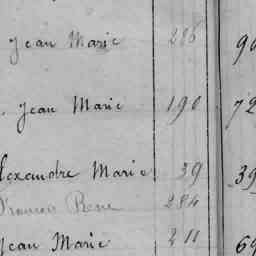 Jean Marie 286 90
Jean Marie 190 72
Alexandre Marie 39 39
François Rene 284
Jean Marie 211 69